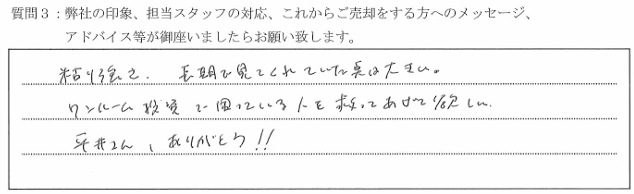 質問３：弊社の印象、担当スタッフの対応、これからご売却をする方へのメッセージ、
アドバイス等が御座いましたらお願い致します。
粘り強さ、長期で見てくれていた点は大きい。
ワンルーム投資で困っている人を救ってあげて欲しい。
平井さん、ありがとう!!